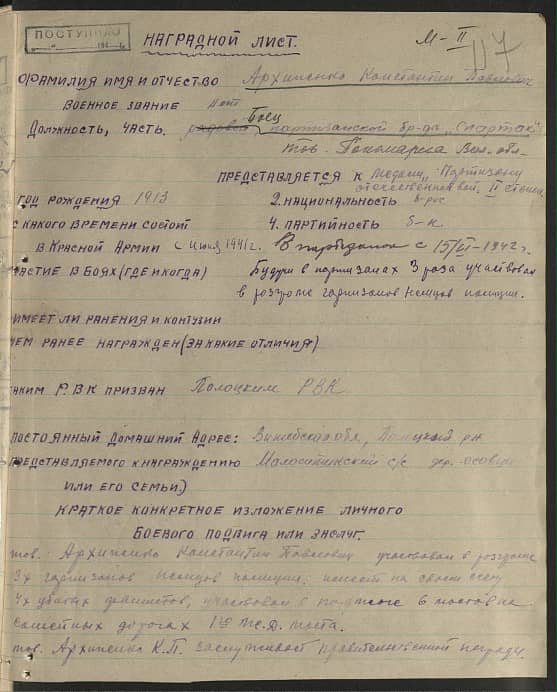 ПОСТУПИЛО
НАГРАДНОЙ ЛИСТ.
М-II
117
ФАМИЛИЯ ИМЯ И ОТЧЕСТВО Архипенко Константин Павлович
ВОЕННОЕ ЗВАНИЕ
ДОЛЖНОСТЬ, ЧАСТЬ. рядовой Боец партизанской бр-ды "Спартак"
тов. Пономарева Вил. обл.
ПРЕДСТАВЛЯЕТСЯ К Медали "Партизану
отечественной в. II степен
ГОД РОЖДЕНИЯ 1913 2. НАЦИОНАЛЬНОСТЬ б-рус
С КАКОГО ВРЕМЕНИ СОСТОИТ 4. ПАРТИЙНОСТЬ б-п
В КРАСНОЙ АРМИИ с Июня 1941г. В партизанах с 15/VI-1942г.
ЧАСТИЕ В БОЯХ (ГДЕ И КОГДА) Будучи в партизанах 3 раза участвовал
в розгроме гарнизонов немцов полиции.
ИМЕЕТ ЛИ РАНЕНИЯ И КОНТУЗИИ
ЧЕМ РАНЕЕ НАГРАЖДЕН (ЗА КАКИЕ ОТЛИЧИЯ)
АКИМ Р.ВК ПРИЗВАН Полоцким РВК
ПОСТОЯННЫЙ ДОМАШНИЙ АДРЕС: Витебская обл, Полоцкий рн
ПРЕДСТАВЛЯЕМОГО К НАГРАЖДЕНИЮ с/с дер.
ИЛИ ЕГО СЕМЬИ)
КРАТКОЕ КОНКРЕТНОЕ ИЗЛОЖЕНИЕ ЛИЧНОГО
БОЕВОГО ПОДВИГА ИЛИ ЗАСЛУГ.
тов. Архипенко Константин Павлович участвовал в розгроме
3х гарнизонов немцов полиции, на своем
4х убитых фашистов, участвовал в поджоге 6 мостов на
дорогах 1го ж.д. моста.
тов. Архипенко К.П. заслуживает правительственной награды.